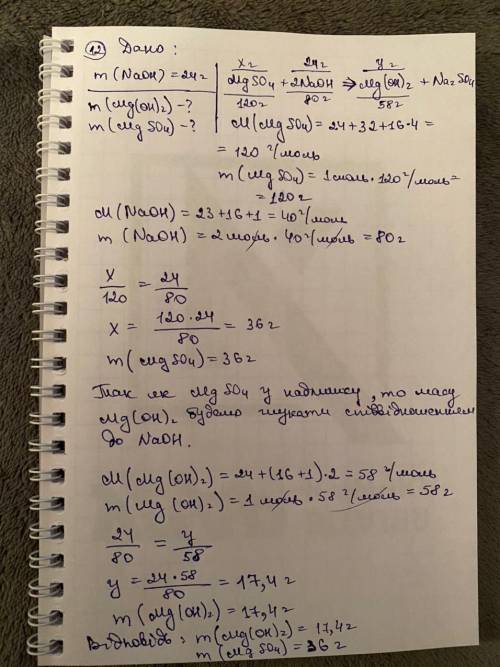 12 Дано:
m(NaOH) = 24г
m(Mg(OH)₂) - ?
m(MgSO₄) - ?
xг 24г yг
MgSO₄ + 2NaOH ⇒ Mg(OH)₂ + Na₂SO₄
120г 80г 58г
M(MgSO₄) = 24+32+16·4 =
= 120 г/моль
m(MgSO₄) = 1моль·120г/моль=
= 120г
M(NaOH) = 23+16+1 = 40г/моль
m(NaOH) = 2моль·40г/моль = 80г
x/120 = 24/80
x = 120·24/80 = 36г
m(MgSO₄) = 36г
Так як MgSO₄ у надлишку, то масу
Mg(OH)₂ будемо шукати співвідношенням
до NaOH.
M(Mg(OH)₂) = 24+(16+1)·2 = 58 г/моль
m(Mg(OH)₂) = 1моль·58г/моль = 58г
24/80 = y/58
y = 24·58/80 = 17,4г
m(Mg(OH)₂) = 17,4г
Відповідь: m(Mg(OH)₂) = 17,4г
m(MgSO₄) = 36г